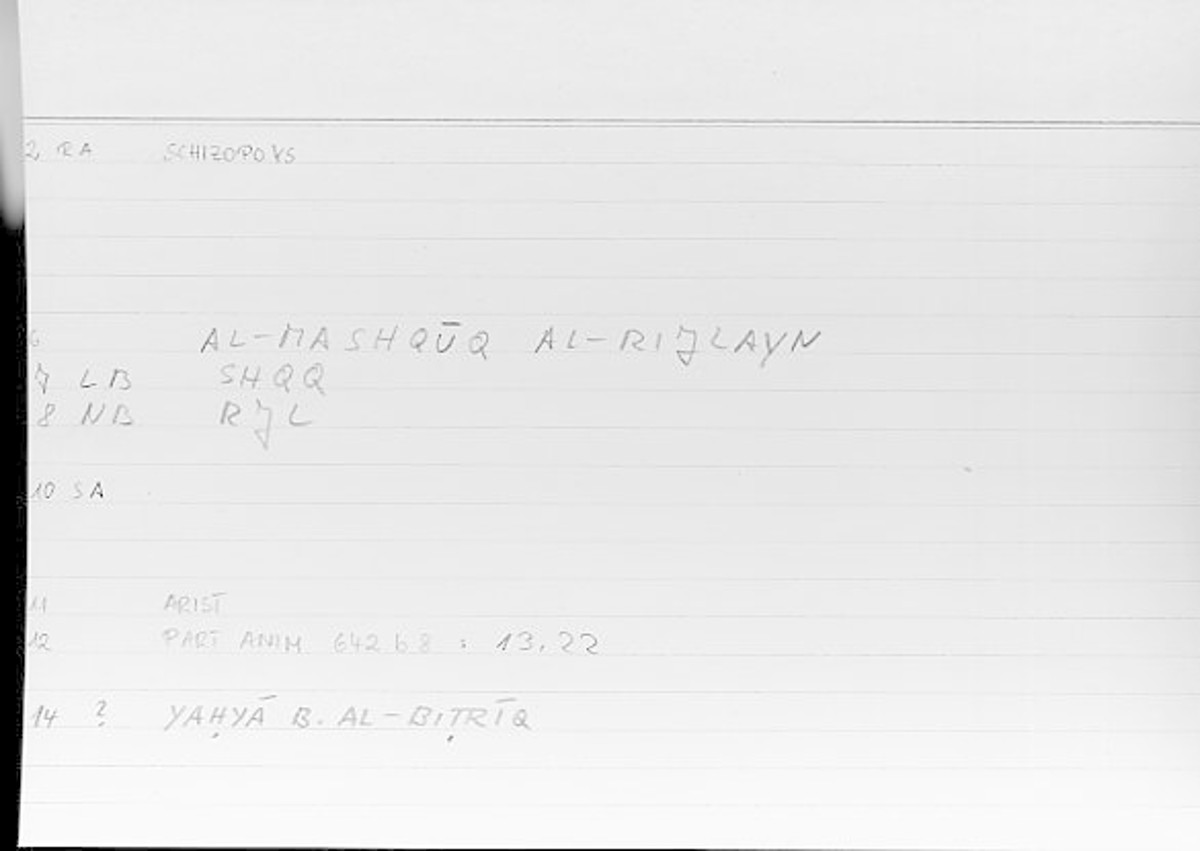 2 RA SCHIZOPOYS
6 AL-MASHQŪQ AL-RIJLAYN
7 LB SHQQ
8 NB RJL
10 SA
11 ARIST
12 PART ANIM 642 b 8 : 13,22
14 ? YAḤYĀ B. AL-BIṬRĪQ